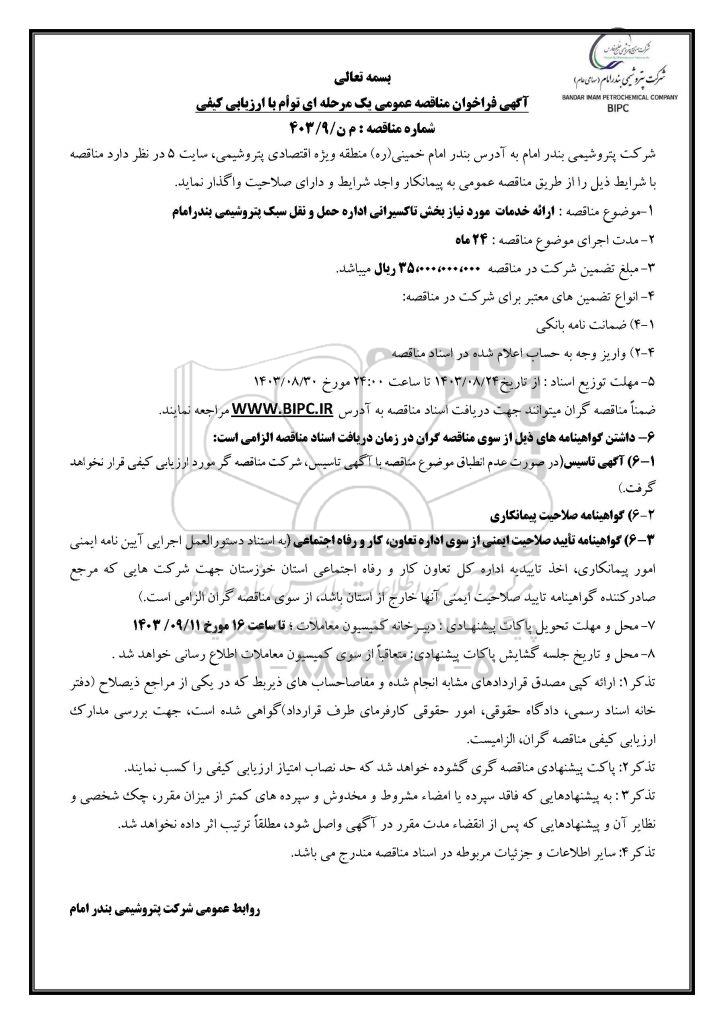 شرکت پتروشیمی بندرامام (سهامی عام)
BANDAR IMAM PETROCHEMICAL COMPANY
BIPC
بسمه تعالی
آگهی فراخوان مناقصه عمومی یک مرحله ای توأم با ارزیابی کیفی
شماره مناقصه : م ن/۴۰۳/۹
شرکت پتروشیمی بندر امام به آدرس بندر امام خمینی(ره) منطقه ویژه اقتصادی پتروشیمی، سایت ۵ در نظر دارد مناقصه
با شرایط ذیل را از طریق مناقصه عمومی به پیمانکار واجد شرایط و دارای صلاحیت واگذار نماید.
۱-موضوع مناقصه : ارائه خدمات مورد نیاز بخش تاکسیرانی اداره حمل و نقل سبک پتروشیمی بندرامام
۲-مدت اجرای موضوع مناقصه : ۲۴ ماه
۳-مبلغ تضمین شرکت در مناقصه ۳۵،۰۰۰،۰۰۰،۰۰۰ ریال میباشد.
۴-انواع تضمین های معتبر برای شرکت در مناقصه:
۴-۱) ضمانت نامه بانکی
۴-۲) واریز وجه به حساب اعلام شده در اسناد مناقصه
۵-مهلت توزیع اسناد : از تاریخ ۱۴۰۳/۰۸/۲۴ تا ساعت ۲۴:۰۰ مورخ ۱۴۰۳/۰۸/۳۰
ضمناً مناقصه گران میتوانند جهت دریافت اسناد مناقصه به آدرس WWW.BIPC.IR مراجعه نمایند.
۶- داشتن گواهینامه های ذیل از سوی مناقصه گران در زمان دریافت اسناد مناقصه الزامی است:
۶-۱) آگهی تاسیس(در صورت عدم انطباق موضوع مناقصه با آگهی تاسیس، شرکت مناقصه گر مورد ارزیابی کیفی قرار نخواهد
گرفت.)
۶-۲) گواهینامه صلاحیت پیمانکاری
۶-۳) گواهینامه تأیید صلاحیت ایمنی از سوی اداره تعاون، کار و رفاه اجتماعی (به استناد دستورالعمل اجرایی آیین نامه ایمنی
امور پیمانکاری، اخذ تاییدیه اداره کل تعاون کار و رفاه اجتماعی استان خوزستان جهت شرکت هایی که مرجع
صادرکننده گواهینامه تایید صلاحیت ایمنی آنها خارج از استان باشد، از سوی مناقصه گران الزامی است.)
۷- محل و مهلت تحویل پاکات پیشنهادی : دبیرخانه کمیسیون معاملات ؛ تا ساعت ۱۶ مورخ ۱۴۰۳ /۰۹/۱۱
۸- محل و تاریخ جلسه گشایش پاکات پیشنهادی: متعاقباً از سوی کمیسیون معاملات اطلاع رسانی خواهد شد .
تذکر۱: ارائه کپی مصدق قراردادهای مشابه انجام شده و مفاصاحساب های ذیربط که در یکی از مراجع ذیصلاح (دفتر
خانه اسناد رسمی، دادگاه حقوقی، امور حقوقی کارفرمای طرف قرارداد)گواهی شده است، جهت بررسی مدارک
ارزیابی کیفی مناقصه گران، الزامیست.
تذکر۲: پاکت پیشنهادی مناقصه گری گشوده خواهد شد که حد نصاب امتیاز ارزیابی کیفی را کسب نمایند.
تذکر۳: به پیشنهادهایی که فاقد سپرده یا امضاء مشروط و مخدوش و سپرده های کمتر از میزان مقرر، چک شخصی و
نظایر آن و پیشنهادهایی که پس از انقضاء مدت مقرر در آگهی واصل شود، مطلقاً ترتیب اثر داده نخواهد شد.
تذکر۴: سایر اطلاعات و جزئیات مربوطه در اسناد مناقصه مندرج می باشد.
روابط عمومی شرکت پتروشیمی بندر امام
۰۲۱-۸۸۳۴۹۶۷۰-۵